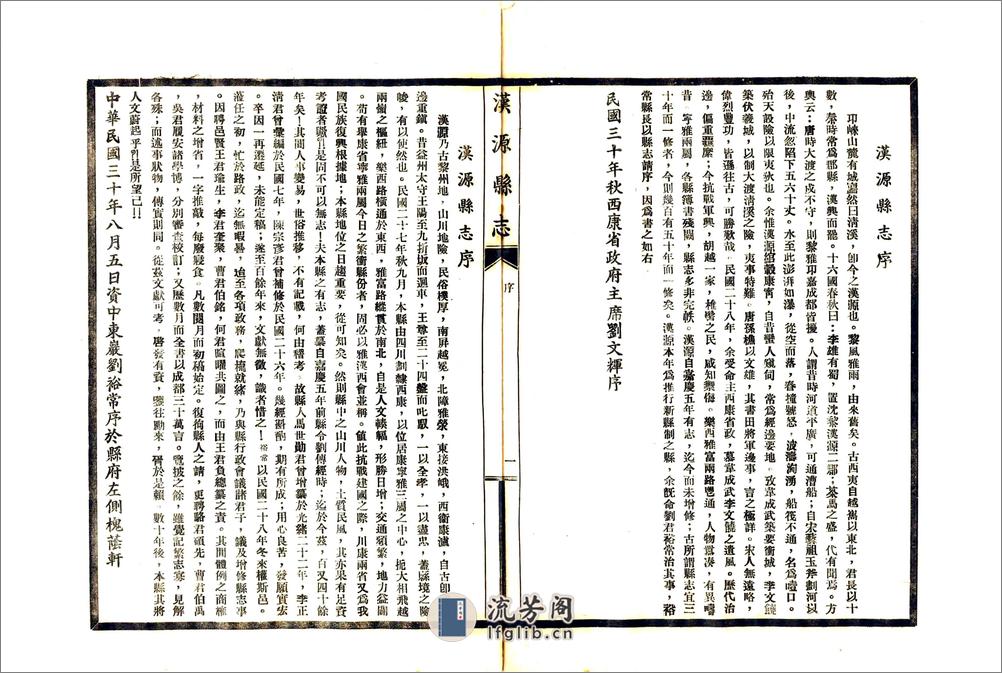 漢源縣志序
邛崍山麓有城巋然曰清溪，卽今之漢源也。黎風雅雨，由來舊矣。古西夷自越嶲以東北，君長以十
數，秦時常爲郡縣，漢興而罷。十六國春秋曰：李雄有蜀，置沈黎漢源二郡；茶馬之盛，代有聞焉。方
輿云：唐時大渡之戍不守，則黎雅邛嘉成都皆擾。人謂昔時河道平廣，可通漕船；自宋藝祖玉斧劃河以
後，中流忽陷下五六十丈。水至此澎湃如瀑，從空而落，舂撞號怒，波濤洶湧，船筏不通，名爲噎口。
殆天設險以限夷狄也。余惟漢源綰轂康甯，自昔蠻人窺伺，常爲經邊要地。攷韋成武築要衝城，李文饒
築伏羲城，以制大渡清溪之險，夷事特難。唐孫樵以文雄，其書田將軍邊事，言之極詳。宋人無遠略，
偉烈豐功，皆遜往古，可勝歎哉。民國二十八年，余受命主西康省政，慕韋成武李文饒之遺風。歷代治
邊，偏重羈縻；今抗戰軍興，胡越一家，椎髻之民，咸知禦侮。樂西雅富兩路鬯通，人物蕃湊，有異疇
昔。寧雅兩屬，各縣簿書殘闕，縣志多非完帙。漢源自嘉慶五年有志，迄今而未增修；古所謂縣志宜三
十年而一修者，今則幾百有五十年而一修矣。漢源本年爲推行新縣制之縣，余旣命劉君裕常治其事，裕
常縣長以縣志請序，因爲書之如右
民國三十年秋西康省政府主席劉文輝序
漢源縣志
序
一
漢源縣志序
漢源乃古黎州地，山川地險，民俗樸厚，南屏越冕，北障雅滎，東接洪峨，西衛康瀘，自古卽
邊重鎮。昔益州太守王陽至九折坂而迴車，王尊至二十四盤而叱馭，一以全孝，一以盡忠，蓋縣境之險
峻，有以使然也。民國二十七年秋九月，本縣由四川劃隸西康，以位居康寧雅三屬之中心，扼大相飛越
兩嶺之樞紐，樂西路橫通於東西，雅富路縱貫於南北，自是人文輳輻，形勝日增；交通頻繁，地力益闢
。苟有舉康省寧雅兩屬今日之繁衝縣份者，固必以雅漢西會並稱。値此抗戰建國之際，川康兩省又爲我
國民族復興根據地；本縣地位之日趨重要，從可知矣。然則縣中之山川人物，土質民風，其亦果有足資
考證者歟！是固不可以無志！夫本縣之有志，蓋纂自嘉慶五年前縣令劉傳經時；迄於今茲，百又四十餘
年矣！其間人事變易，世俗推移，不有記載，何由稽考。故縣人馬世勛君曾擬纂於光緒二十二年，李正
清君曾彙編於民國七年，陳宗彥君曾補修於民國二十六年。幾經籌酌，期有所成；用心良苦，發願實宏
。卒因一再遷延，未能定稿；遂至百餘年來，文獻無徵，識者惜之！裕常以民國二十八年冬來權斯邑。
蒞任之初，忙於路政，迄無暇晷，追至各項政務，爬梳就緒，乃與縣行政會議諸君子，議及增修縣志事
。因聘邑賢王君瑞生，李君奎榮，曹君伯銘，何君宣曜共圖之。而由王君負總纂之責。其間體例之商榷
，材料之增省，一字推敲，每廢寢食。凡數閱月而初稿始定。復徇縣人之請，更聘駱君頌先，曹君伯萬
，吳君履安諸學博，分別審查校訂；又歷數月而全書以成都三十萬言。覽披之餘，雖覺記繁志寡，見解
各殊；而述事狀物，傳實則同。從茲文獻可考，啓發有資，鑒往勵來，胥於是賴。數十年後，本縣其將
人文蔚起乎！是所望已！！
中華民國三十年八月五日資中東巖劉裕常序於縣府左側槐蔭軒
流芳阁
lfglib.cn